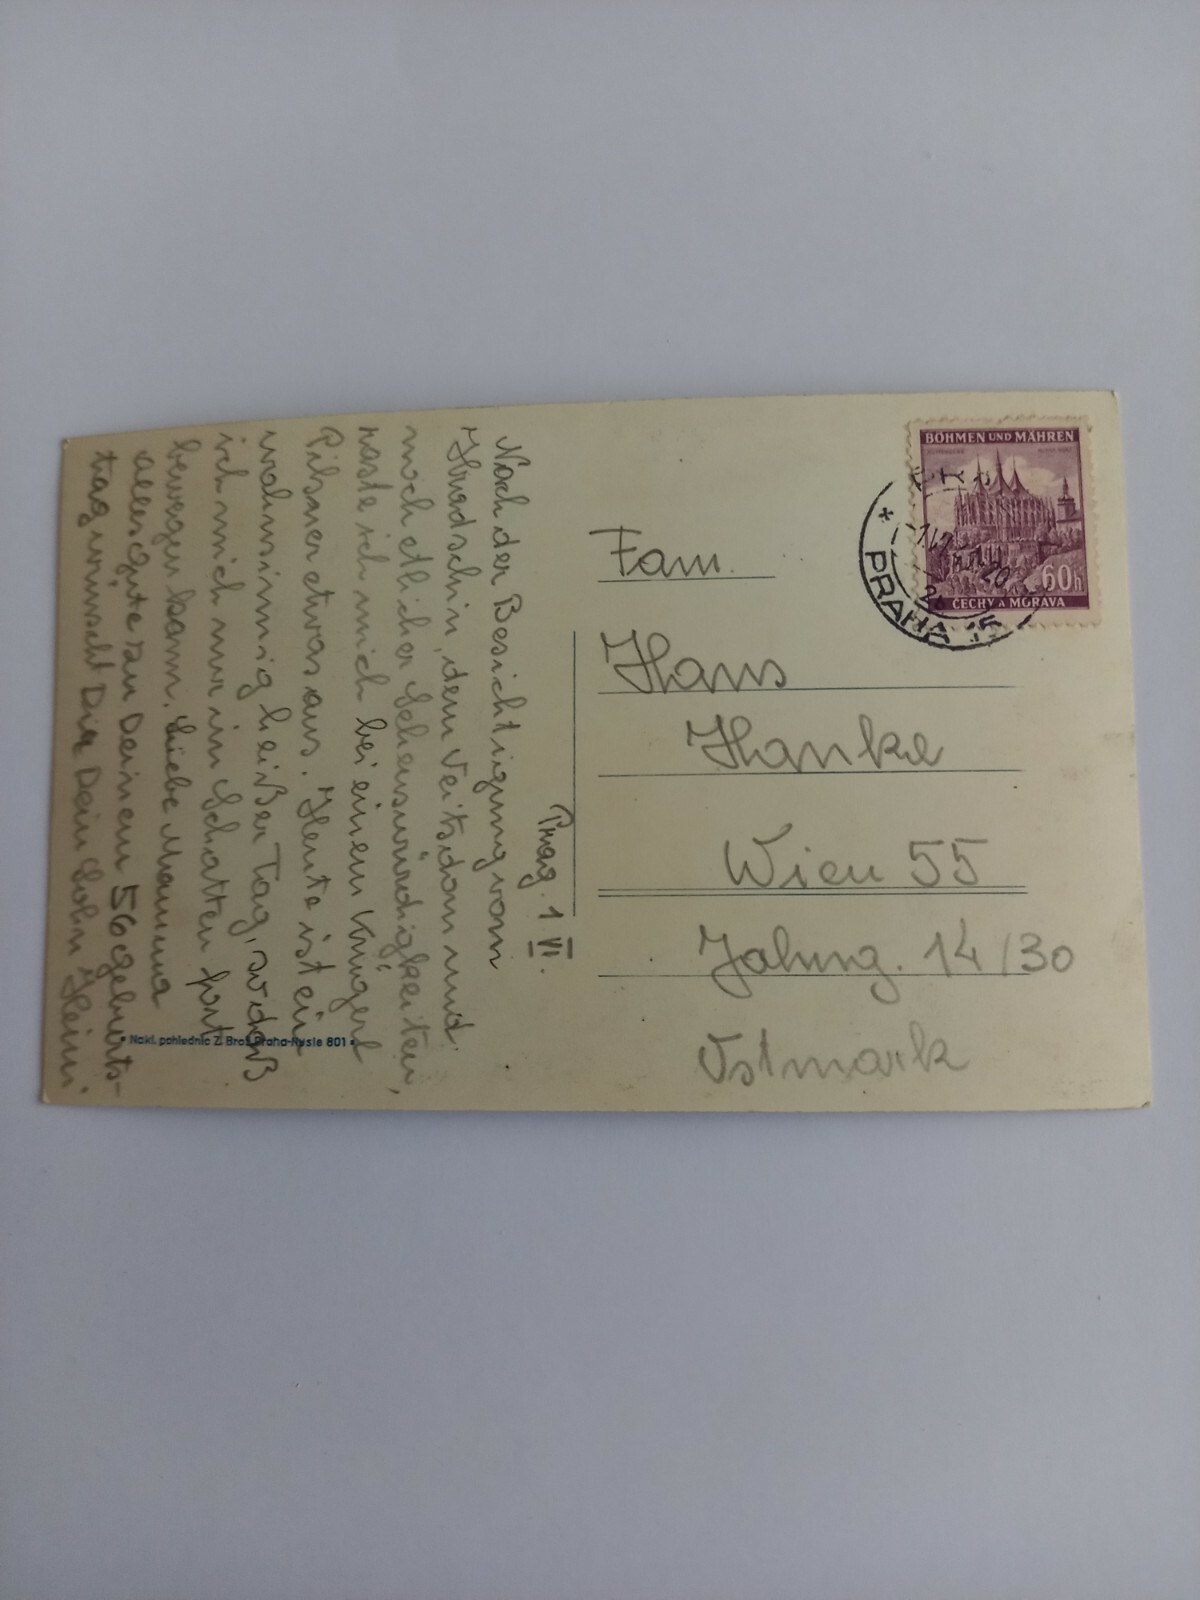 Prag. 1 VI.
Nach der Besichtigung vom
Hradschin, dem Veitsdom und
noch etlicher Sehenswürdigkeiten,
raste ich mich bei einem Krügerl
Pilsner etwas aus. Heute ist ein
wahnsinnig heißer Tag, sodaß
ich mich nur im Schatten fort
bewegen kann. Liebe Mamma
alles Gute zu Deinem 56 Geburts-
tag wünscht Dir Dein Sohn Heini.
Nakl. pohlednic Z. Brož Praha-Nusle 801
BÖHMEN UND MÄHREN
60h
ČECHY A MORAVA
PRAHA 15
Fam.
Hans
Hanke
Wien 55
Jahng. 14/30
Ostmark